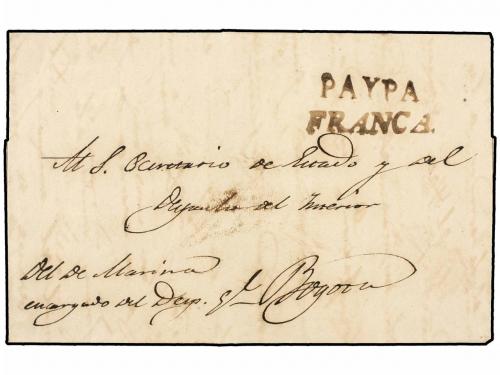 PAYPA
FRANCA.
Al S. Secretario de Estado y del
Despacho del Interior
Del de Marina
encargado del Desp. gl Bogota